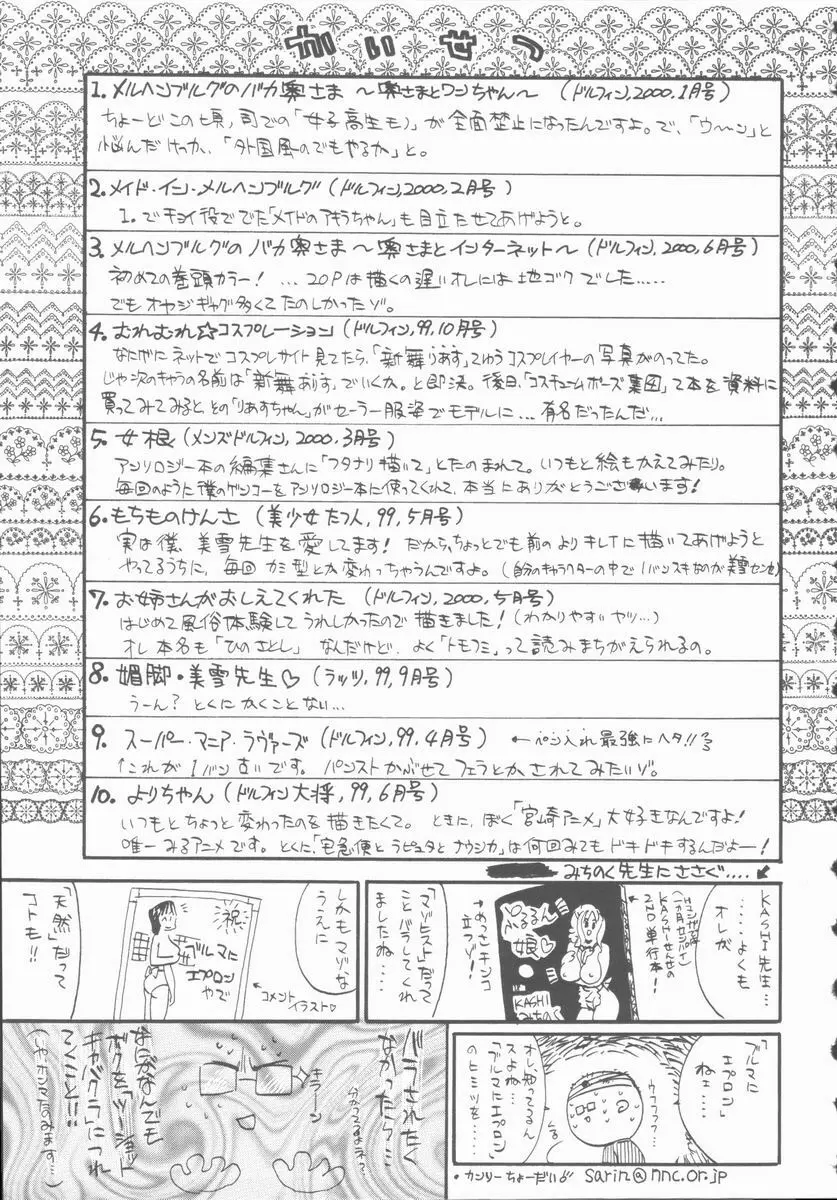 かいせつ
1. メルヘンブルグのバカ奥さま 〜奥さまとワンちゃん〜 (ドルフィン,2000,1月号)
ちょーどこの頃、司での「女子高生モノ」が全面禁止になったんですよ。で、「ウ〜ン」と
悩んだけっか、「外国風のでもやるか」と。
2. メイド・イン・メルヘンブルグ (ドルフィン,2000,2月号)
1.でチョイ役ででた「メイドのアキラちゃん」も目立たせてあげようと。
3. メルヘンブルグのバカ奥さま 〜奥さまとインターネット〜 (ドルフィン,2000,6月号)
初めての巻頭カラー! ...20Pは描くの遅いオレには地ゴクでした.....
でもオヤジギャグ多くてたのしかったゾ。
4. むれむれ☆コスプレーション (ドルフィン,99,10月号)
なにげにネットでコスプレサイト見てたら、「新舞りあす」てゆうコスプレイヤーの写真がのってた。
じゃ次のキャラの名前は「新舞ありす」でいくか。と即決。後日、「コスチュームポーズ集団」て本を資料に
買ってみてみると、その「りあすちゃん」がセーラー服姿でモデルに...有名だったんだ...
5. 女根 (メンズドルフィン,2000,3月号)
アンソロジー本の編集さんに「フタナリ描いて」とたのまれて。いつもと絵もかえてみたり。
毎回のように僕のゲンコーをアンソロジー本に使ってくれて、本当にありがとうございます!
6. もちものけんさ (美少女たつ人,99,5月号)
実は僕、美雪先生を愛してます! だから、ちょっとでも前のよりキレイに描いてあげようと
やってるうちに、毎回カミ型とか変わっちゃうんですよ。(自分のキャラクターの中で1バンスキなのが美雪センセ)
7. お姉さんがおしえてくれた (ドルフィン,2000,5月号)
はじめて風俗体験してうれしかったので描きました!(わかりやすいヤツ...)
オレ本名も「ひのさとし」なんだけど、よく「トモフミ」って読みまちがえられるの。
8. 媚脚・美雪先生♡ (ラッツ,99,9月号)
うーん? とくにかくことない...
9. スーパー・マニア・ラヴァーズ (ドルフィン,99,4月号) ←ペン入れ最強にヘタ!!
↑これが1バン古いです。パンストかぶせてフェラとか、されてみたいゾ。
10. よりちゃん (ドルフィン大将,99,6月号)
いつもとちょっと変わったのを描きたくて。ときに、ぼく「宮崎アニメ」大好きなんですよ!
唯一みるアニメです。とくに、「宅急便とラピュタとナウシカ」は何回みてもドキドキするんだよー!
みちのく先生にささぐ....
KASHI先生...
.....よくも
オレが
KASHIせんせの
2ND単行本!
ぷるるん
娘♡
KASHI
みちのく
めっさチンコ
立つゾ!
「マゾヒスト」だって
ことバラしてくれ
ましたね...
しかもマゾな
うえに
祝
ブルマに
エプロン
やで
コメント
イラスト♡
「天然」だって
コトも!!
「ブルマに
エプロン」
ねェ...
ウフフフ...
オレ、知ってるん
スよね...
「ブルマにエプロン」
のヒミツを...
バラされたく
なかったら...
キラーン
分かってるよネ?
なにがなんでも
ボクを「ツーショット
キャバクラ」につれ
てくこと!!!
(いやホンマたのみます...)
・カンソーちょーだい sarin@nnc.or.jp